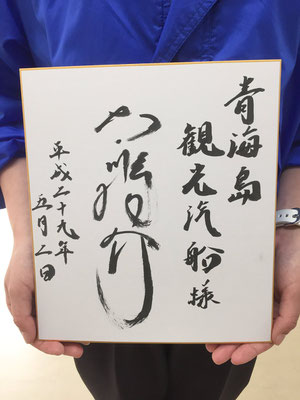 青海島
観光汽船様
平成二十九年
五月二日